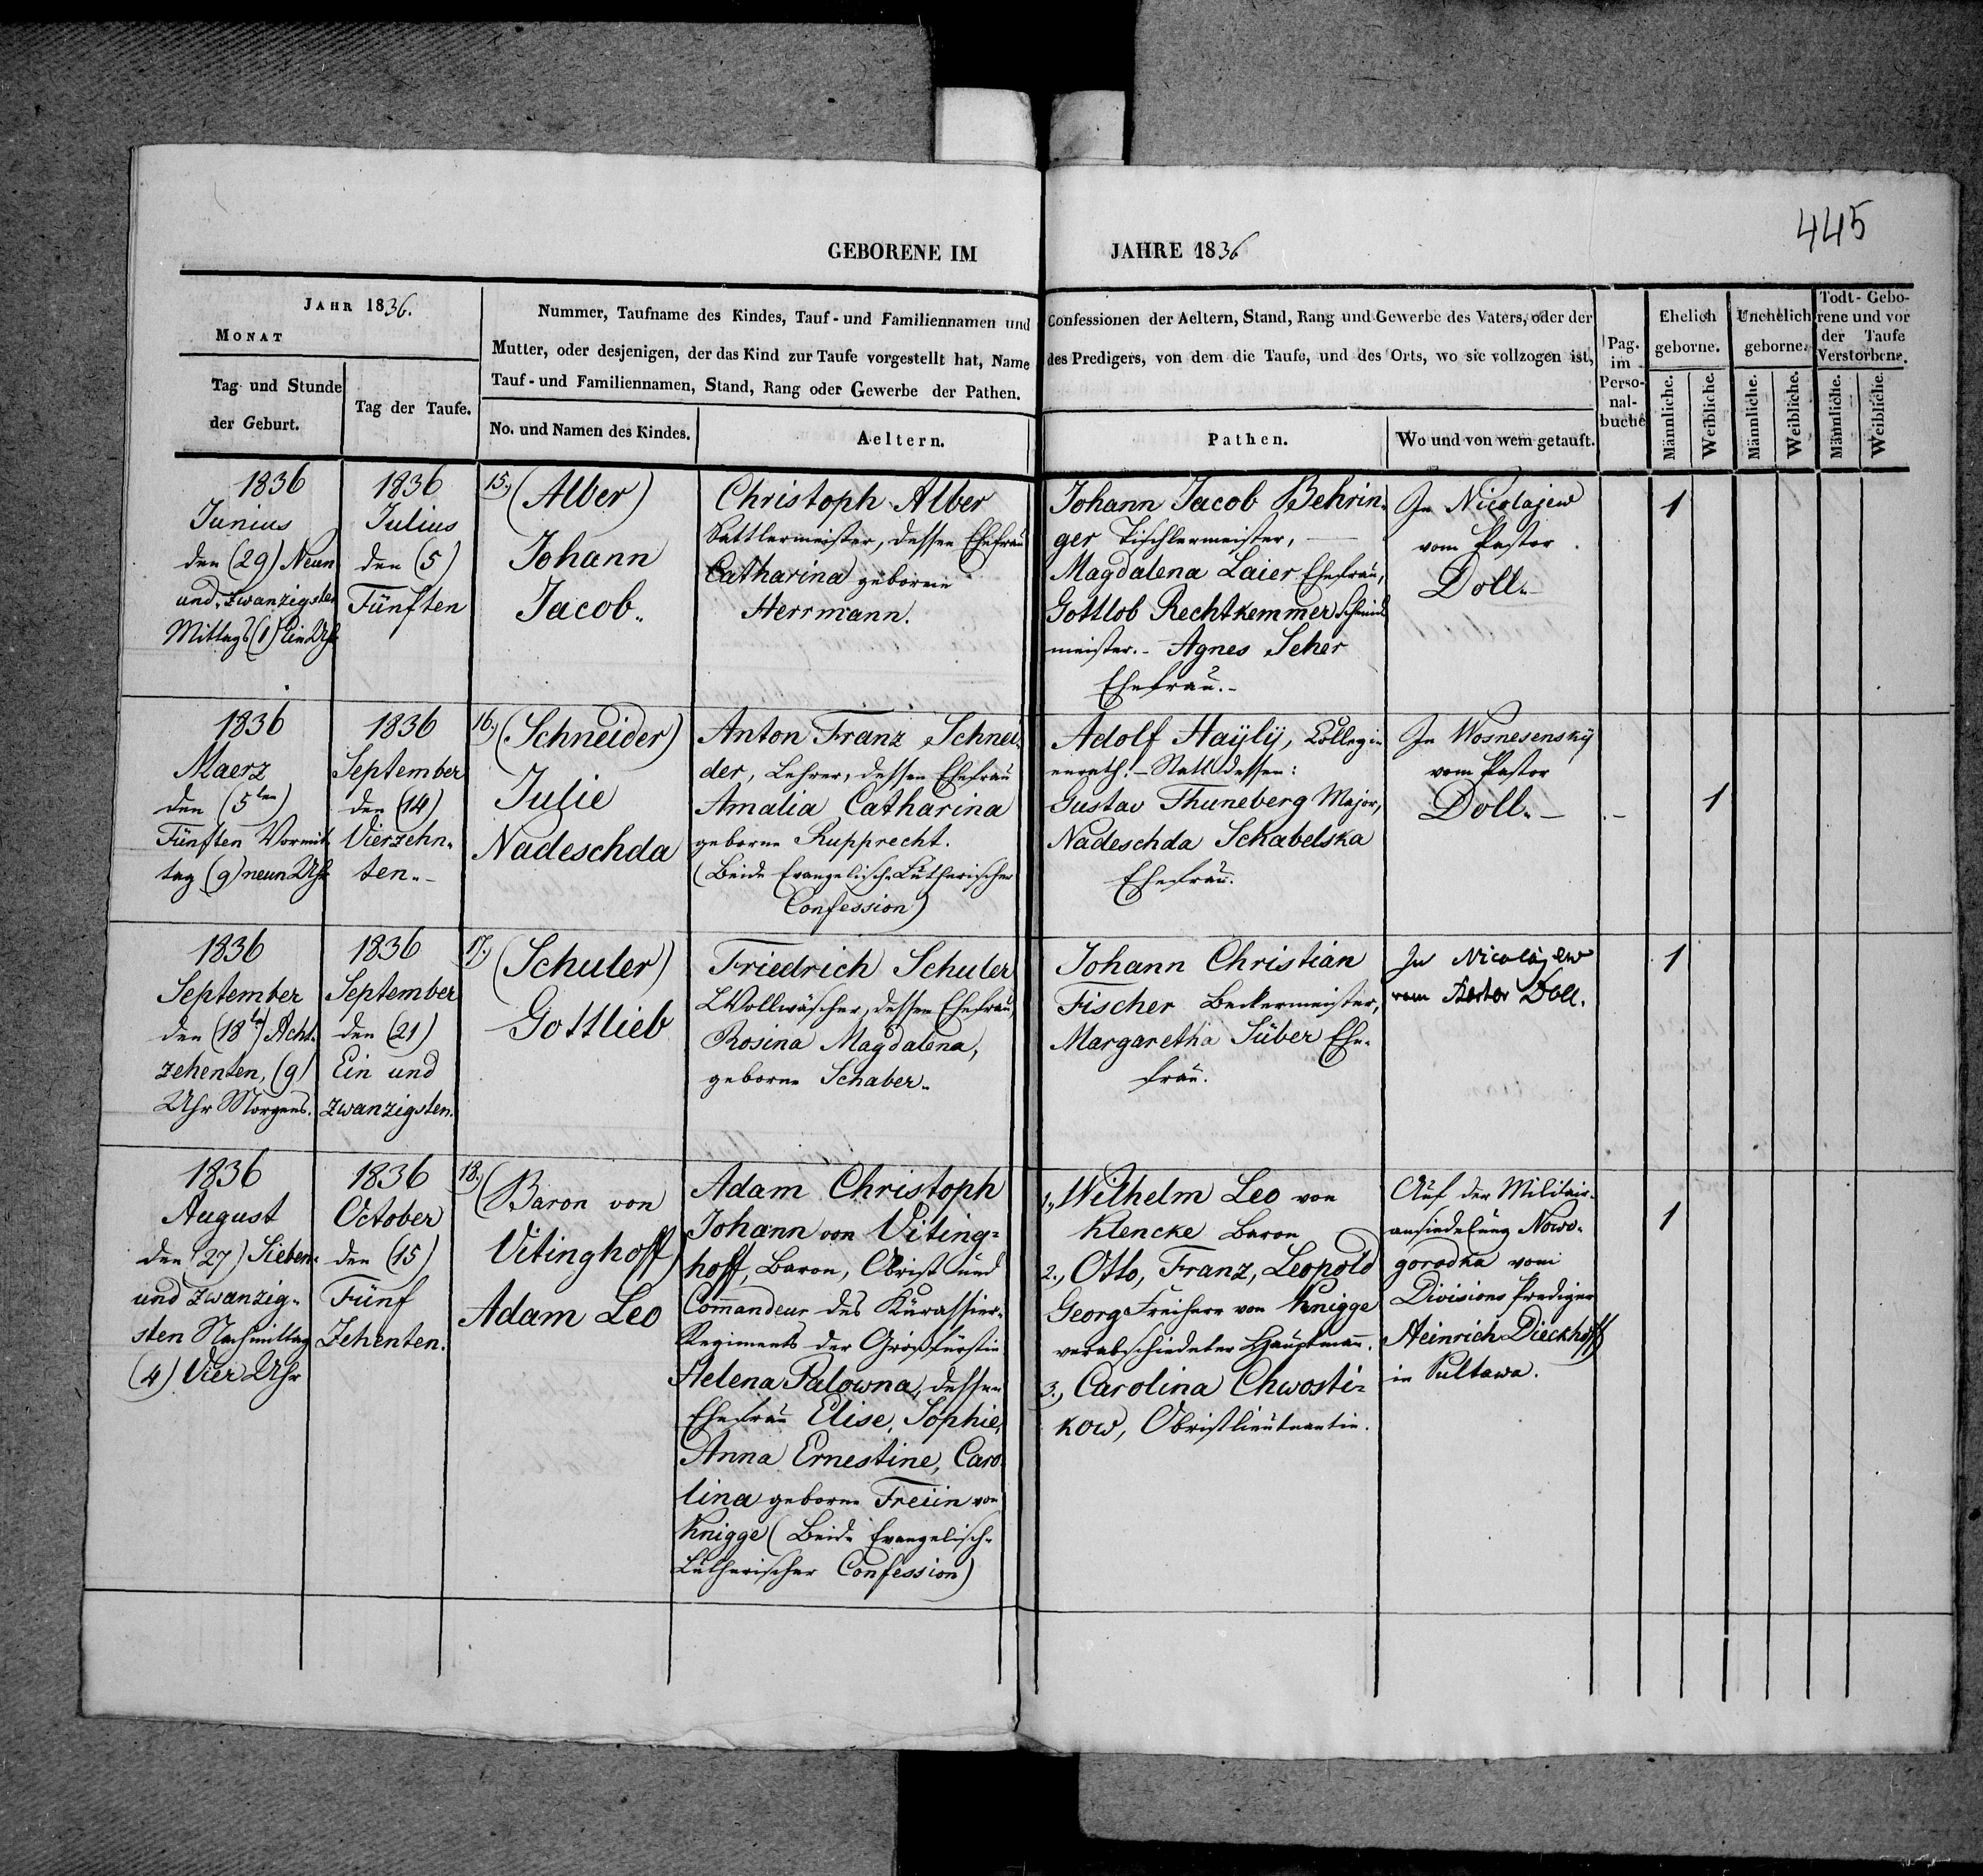 445
GEBORENE IM JAHRE 1836
JAHR 1836.
MONAT
Tag und Stunde
der Geburt.
Tag der Taufe.
Nummer, Taufname des Kindes, Tauf- und Familiennamen und
Mutter, oder desjenigen, der das Kind zur Taufe vorgestellt hat, Name
Tauf- und Familiennamen, Stand, Rang oder Gewerbe der Pathen.
No. und Namen des Kindes.
Aeltern.
Confessionen der Aeltern, Stand, Rang und Gewerbe des Vaters, oder der
des Predigers, von dem die Taufe, und des Orts, wo sie vollzogen ist,
Pathen.
Wo und von wem getauft.
Pag.
im
Perso-
nal-
buche
Ehelich
geborne.
Unehelich
geborne.
Todt-Gebo-
rene und vor
der Taufe
Verstorbene.
Männliche.
Weibliche.
Männliche.
Weibliche.
Männliche.
Weibliche.
1836
Junius
den (29) Neun
und zwanzigsten
Mittags (1) Ein Uhr
1836
Julius
den (5)
Fünften
15.) (Alber)
Johann
Jacob.
Christoph Alber
Sattlermeister, dessen Ehefrau
Catharina geborene
Herrmann.
Johann Jacob Behrin-
ger Tischlermeister, —
Magdalena Laier Ehefrau,
Gottlob Rechtkemmer Schmied
meister. - Agnes Seher
Ehefrau. -
In Nicolajew
vom Pastor
Doll. -
1
1836
Maerz
den (5ten)
Fünften Vormit-
tag (9) neun Uhr
1836
September
den (14)
Vierzehn-
ten. -
16.) (Schneider)
Julie
Nadeschda
Anton Franz Schnei-
der, Lehrer, dessen Ehefrau
Amalia Catharina
geborne Rupprecht.
(Beide Evangelisch-Lutherischer
Confession)
Adolf Hayly, Collegi-
enrath. - Statt dessen:
Gustav Thuneberg Major,
Nadeschda Schabelska
Ehefrau.
In Wosnesensky
vom Pastor
Doll. -
1
1836
September
den (18ten) Acht-
zehenten, (9)
Uhr Morgens.
1836
September
den (21)
Ein und
zwanzigsten.
17.) (Schuler)
Gottlieb
Friedrich Schuler
Wollwäscher, dessen Ehefrau
Rosina Magdalena,
geborne Schaber.
Johann Christian
Fischer Beckermeister,
Margaretha Süber Ehe-
frau.
In Nicolajew
vom Pastor Doll.
1
1836
August
den (27) Sieben-
und zwanzig-
sten Nachmittag
(4) Vier Uhr
1836
October
den (15)
Fünf
Zehenten.
18.) (Baron von
Vitinghoff)
Adam Leo
Adam Christoph
Johann von Viting-
hoff, Baron, Obrist und
Commandeur des Kürassier-
Regiments der Großfürstin
Helena Palowna, dessen
Ehefrau Elise, Sophie,
Anna Ernestine, Caro-
lina geborne Freiin von
Knigge (Beide Evangelisch-
Lutherischer Confession)
1., Wilhelm Leo von
Klencke Baron
2., Otto, Franz, Leopold
Georg Freiherr von Knigge
verabschiedeter Hauptmann.
3., Carolina Chwosti-
kow, Obristlieutnantin.
Auf der Militair-
ansiedelung Nowo-
gorodka vom
Divisions Prediger
Heinrich Dieckhoff
in Pultawa.
1